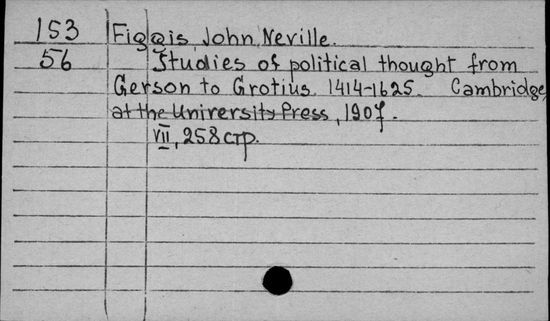 153 Figgis, John Neville.
56 Studies of political thought from
Gerson to Grotius. 1414-1625. Cambridge,
at the University Press, 1907.
VII, 258 стр.